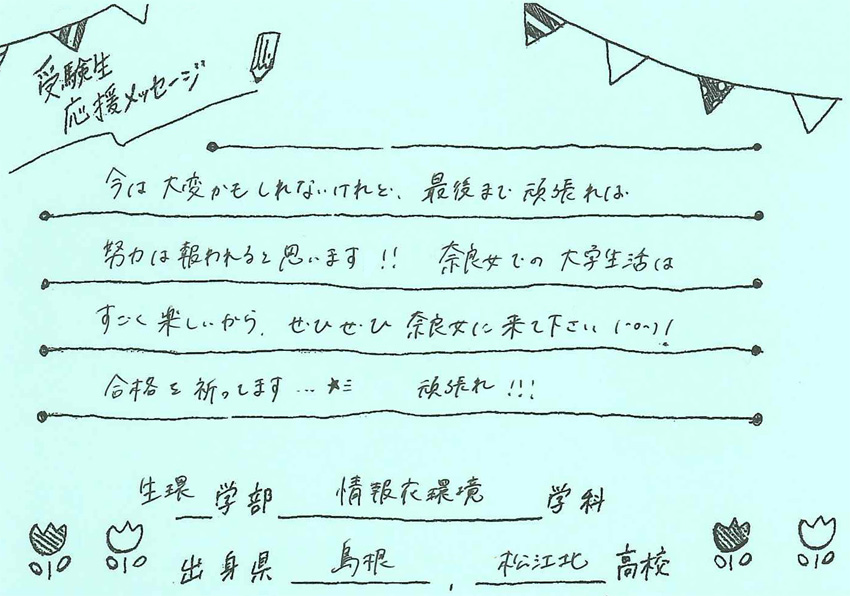 受験生
応援メッセージ
今は大変かもしれないけれど、最後まで頑張れば
努力は報われると思います!! 奈良女での大学生活は
すごく楽しいから、ぜひぜひ奈良女に来て下さい(^o^)!
合格を祈ってます…★ミ 頑張れ!!!
生環 学部 情報衣環境 学科
出身県 島根, 松江北 高校